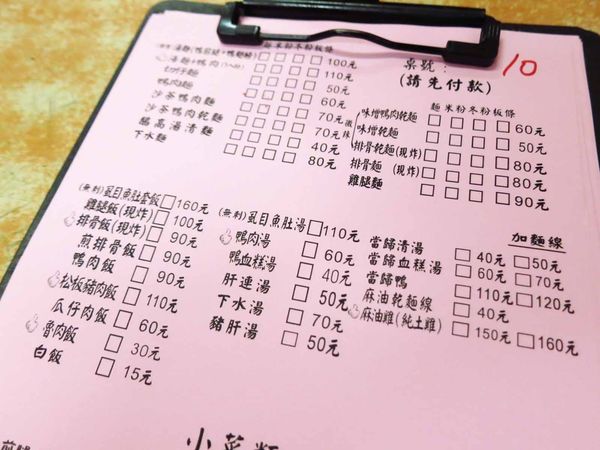 桌號: 10
(請先付款)
麵米粉冬粉板條
100元
110元
切仔麵 50元
鴨肉麵 60元
沙茶鴨肉乾麵 70元
沙茶鴨肉麵 70元
鵝高湯清麵 40元
下水麵 80元
麵米粉冬粉板條
味增鴨肉乾麵 60元
味增乾麵 50元
排骨乾麵(現炸) 80元
排骨麵(現炸) 80元
雞腿麵 90元
(無刺)虱目魚肚套飯 160元
雞腿飯(現炸) 100元
排骨飯(現炸) 90元
煎排骨飯 90元
鴨肉飯 90元
松板豬肉飯 110元
瓜仔肉飯 60元
魯肉飯 30元
白飯 15元
(無刺)虱目魚肚湯 110元
鴨肉湯 60元
鴨血糕湯 40元
肝連湯 50元
下水湯 70元
豬肝湯 50元
加麵線
當歸清湯 40元 50元
當歸血糕湯 60元 70元
當歸鴨 110元 120元
麻油乾麵線 40元
麻油雞(純土雞) 150元 160元
小菜類